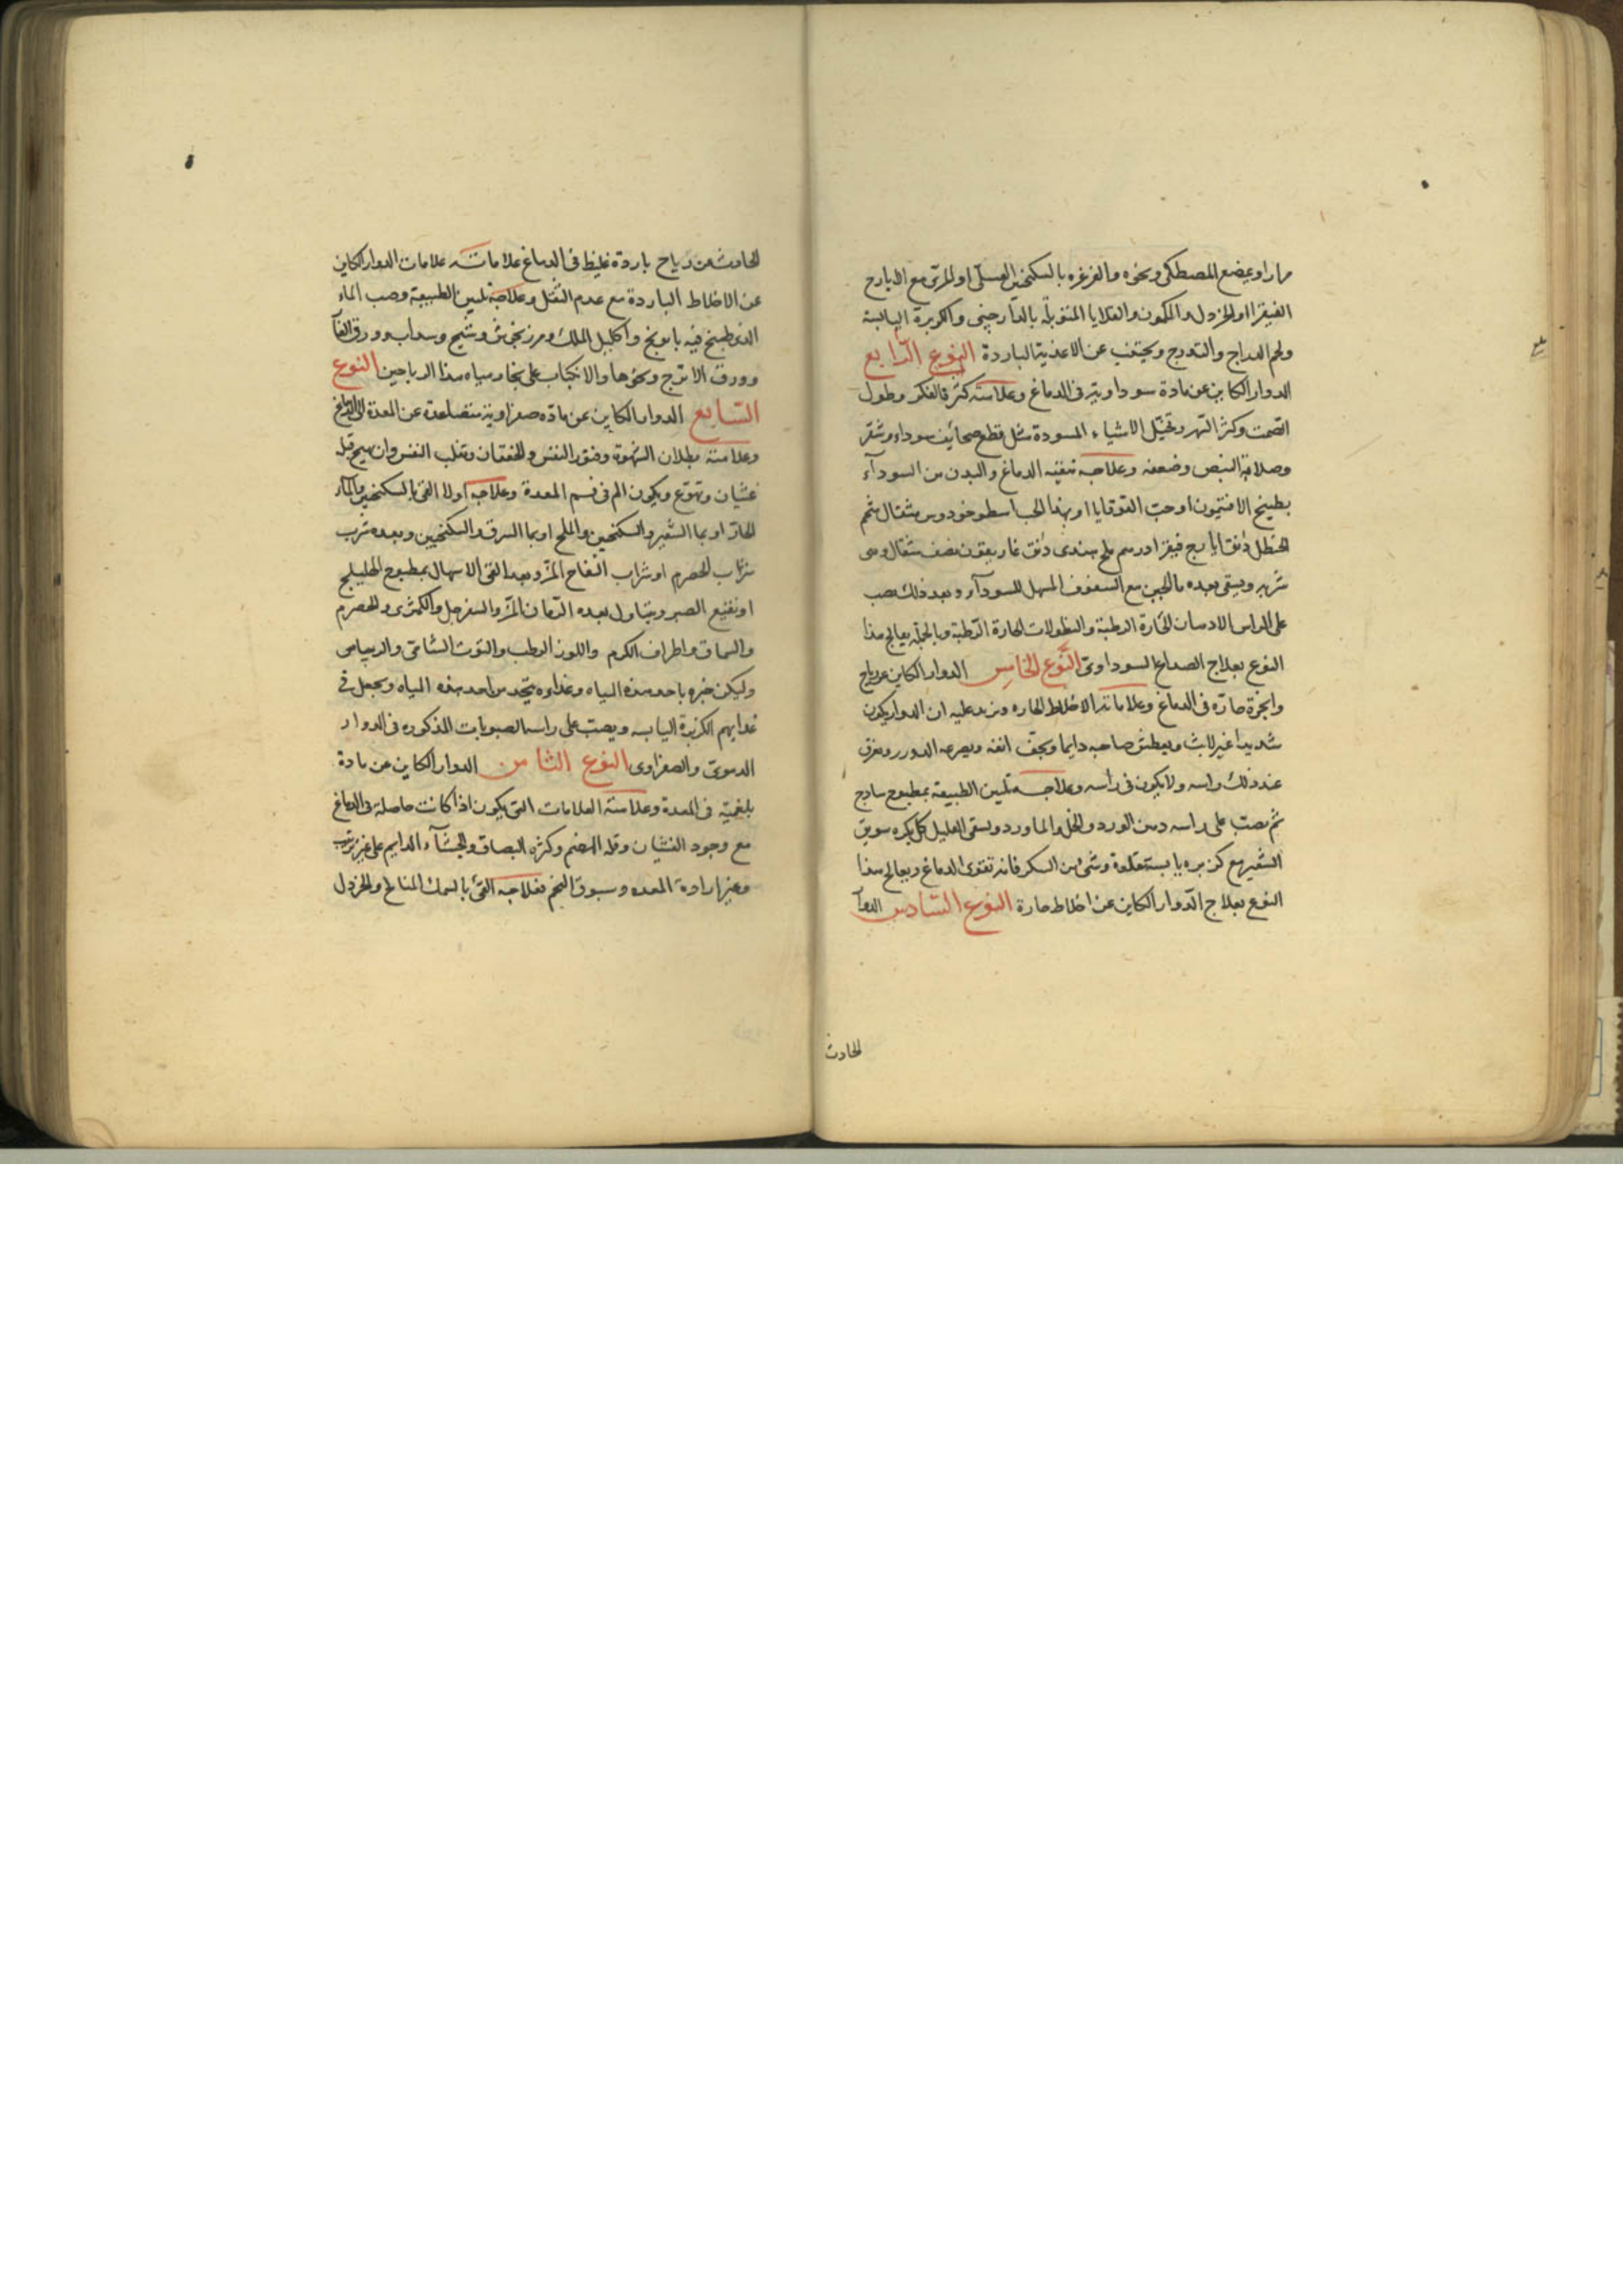 مرارا ويمضغ المصطكى ونحوه والغرغره بالسكنجبين العسلى او المرى مع الايارج
الفيقرا او الخردل والكمون والقلايا المتوبلة بالدارجينى والكزبرة اليابسة
ولحم الدراج والتدرج ويجتنب عن الاغذية الباردة النوع الرابع
الدوار الكاين عن مادة سوداوية فى الدماغ وعلامته كثرة الفكر وطول
الصمت وكثرة السهر وتخيل الاشياء المسودة مثل قطع صحائف سوداء وشعر
وصلابة النبض وضعفه وعلاجه تنقية الدماغ والبدن من السوداء
بطبيخ الافتيمون او حب القوقايا او بهذا الحب اسطوخودوس مثقال شحم
الحنظل دانق ايارج فيقرا درهم ملح هندى دانق غاريقون نصف مثقال وهى
شربه ويسقى بعده ماء الجبن مع السفوف المسهل للسودآء وبعد ذلك يصب
على الراس الادهان الحارة الرطبة والنطولات الحارة الرطبة وبالجملة يعالج هذا
النوع بعلاج الصداع السوداوى النوع الخامس الدوار الكاين عن رياح
وابخرة حارة فى الدماغ وعلاماته الاخلاط الحاره ويزيد عليه ان الدوار يكون
شديدا غير لابث ويعطش صاحبه دايما ويجف انفه ويصرعه الدور ويعرق
عند ذلك راسه ولا يكون فى راسه وعلاجه تليين الطبيعة بمطبوخ ساذج
ثم يصب على راسه دهن الورد والخل والماورد ويسقى العليل كل بكره سويق
الشعير مع كزبره يابسة مقلوة وشى من السكر فانه تقوى الدماغ ويعالج هذا
النوع بعلاج الدوار الكاين عن اخلاط حارة النوع السادس الدوار
الحادث
الحادث من رياح باردة غليظ فى الدماغ علاماته علامات الدوار الكاين
عن الاخلاط الباردة مع عدم الثقل وعلاجه تليين الطبيعة وصب الماء
الذى طبخ فيه بابونج واكليل الملك ومرزنجوش وشيح وسداب وورق الغار
وورق الاترج ونحوها والانكباب على بخار مياه هذا الرياحين النوع
السابع الدوار الكاين عن ماده صفراوية متصاعدة عن المعدة الى الدماغ
وعلامته بطلان الشهوة وضور النفس والخفقان وتقلب النفس وان يهيج قبله
غثيان وتهوع ويكون الم فى فم المعدة وعلاجه اولا القى بالسكنجبين والماء
الحار او بماء الشعير والسكنجبين والملح او بماء السرق والسكنجبين وبعده شرب
شراب الحصرم او شراب التفاح المز وبعد القى الاسهال بمطبوخ الهليلج
او نقيع الصبر ويتناول بعده الرمان المز والسفرجل والكمثرى والحصرم
والسماق واطراف الكرم واللوز الرطب والتوت الشامى والريباس
وليكن خبزه باحد هذه المياه وغذاوه يتخذ من احد هذه المياه ويجعل فى
غذايهم الكزبرة اليابسه ويصب على راسه الصبوبات المذكوره فى الدوار
الدموى والصفراوى النوع الثامن الدوار الكاين من مادة
بلغمية فى المعدة وعلامته العلامات التى يكون اذا كانت حاصله فى الدماغ
مع وجود الغثيان وقلة الهضم وكثرة البصاق والجشآء الدايم على غير ترتيب
وغير ارادة المعده وسبوق التخم فعلاجه القئ بالسمك المالح والخردل